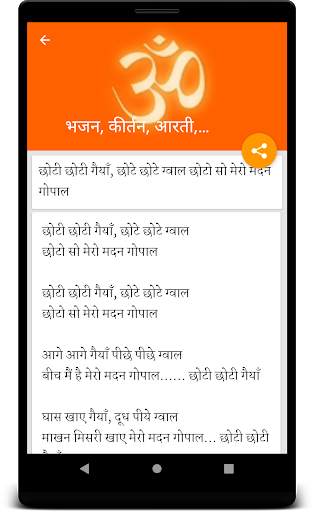 ॐ
भजन, कीर्तन, आरती,...
छोटी छोटी गैयाँ, छोटे छोटे ग्वाल छोटो सो मेरो मदन
गोपाल
छोटी छोटी गैयाँ, छोटे छोटे ग्वाल
छोटो सो मेरो मदन गोपाल
छोटी छोटी गैयाँ, छोटे छोटे ग्वाल
छोटो सो मेरो मदन गोपाल
आगे आगे गैयाँ पीछे पीछे ग्वाल
बीच मैं है मेरो मदन गोपाल...... छोटी छोटी गैयाँ
घास खाए गैयाँ, दूध पीये ग्वाल
माखन मिसरी खाए मेरो मदन गोपाल... छोटी छोटी